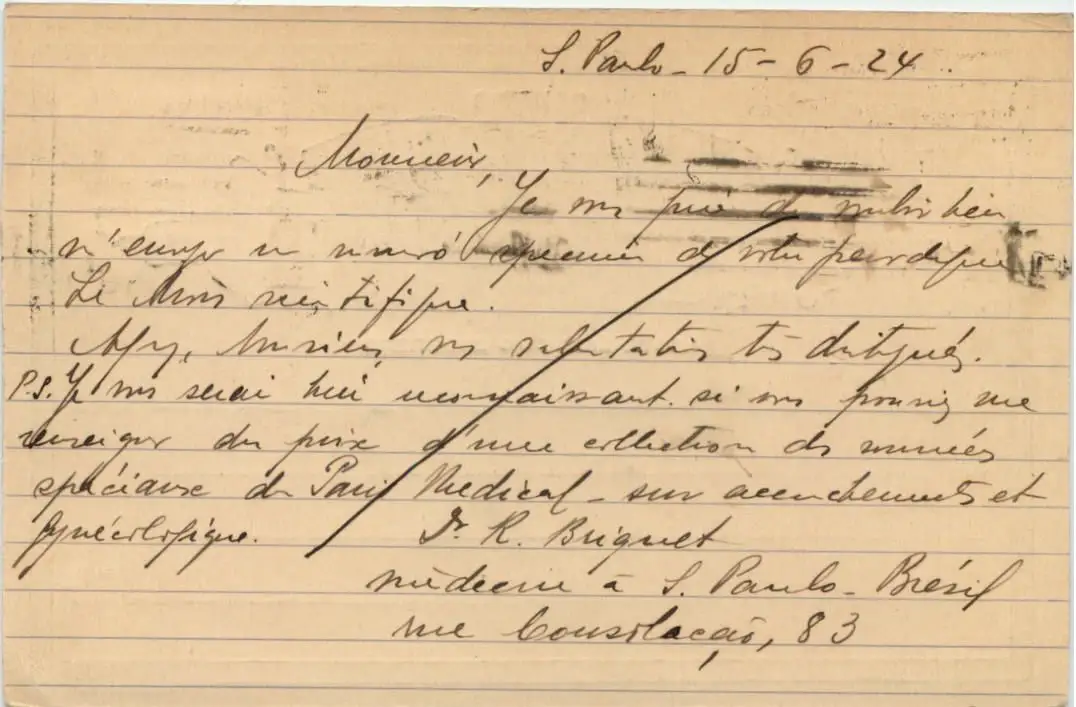 S. Paulo - 15 - 6 - 24
Monsieur,
Je vous prie de vouloir bien
m'envoyer un numéro specimen de votre periodique
Le Mois scientifique.
Agréez, Monsieur, mes salutations très distinguées.
P.S. Je vous serai bien reconnaissant si vous pouviez me
renseigner du prix d'une collection des numéros
spéciaux de Paris Medical - sur accouchements et
gynécologique.
Dr R. Briquet
médecin à S. Paulo - Brésil
rue Consolação, 83